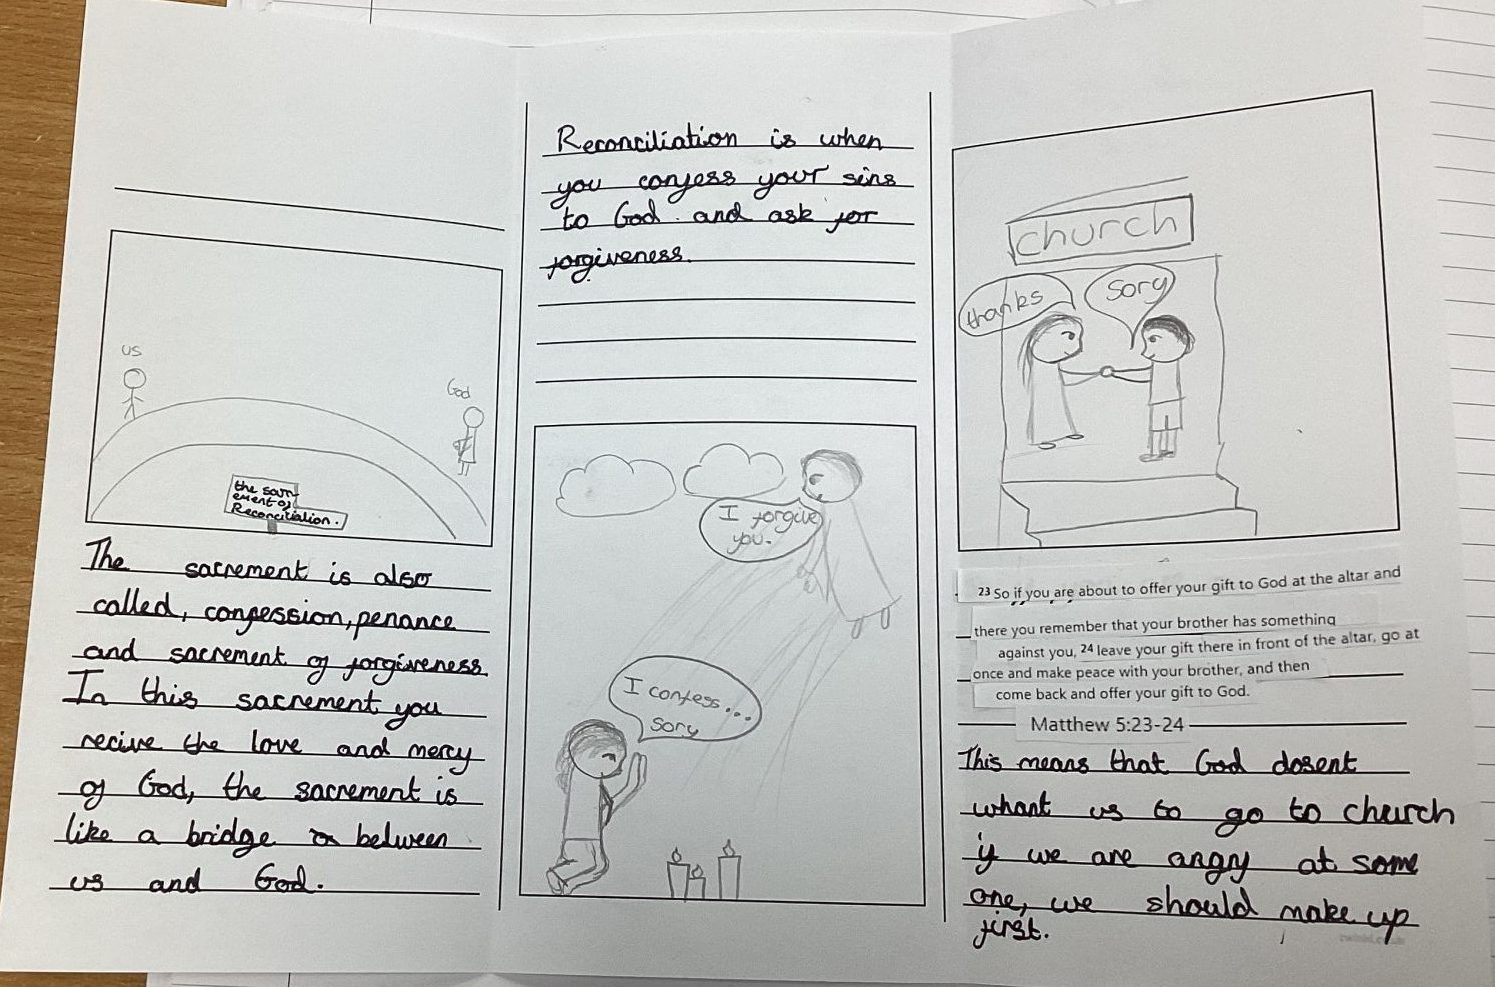 us
God
the sacr
ement of
Reconciliation.
The sacrement is also
called, confession, penance
and sacrement of forgiveness.
In this sacrement you
recive the love and mercy
of God, the sacrement is
like a bridge between
us and God.
Reconciliation is when
you confess your sins
to God and ask for
forgiveness.
I forgive
you.
I confess...
sory
church
thanks
Sory
23 So if you are about to offer your gift to God at the altar and
there you remember that your brother has something
against you, 24 leave your gift there in front of the altar, go at
once and make peace with your brother, and then
come back and offer your gift to God.
Matthew 5:23-24
This means that God dosent
whant us to go to church
if we are angry at some
one, we should make up
first.